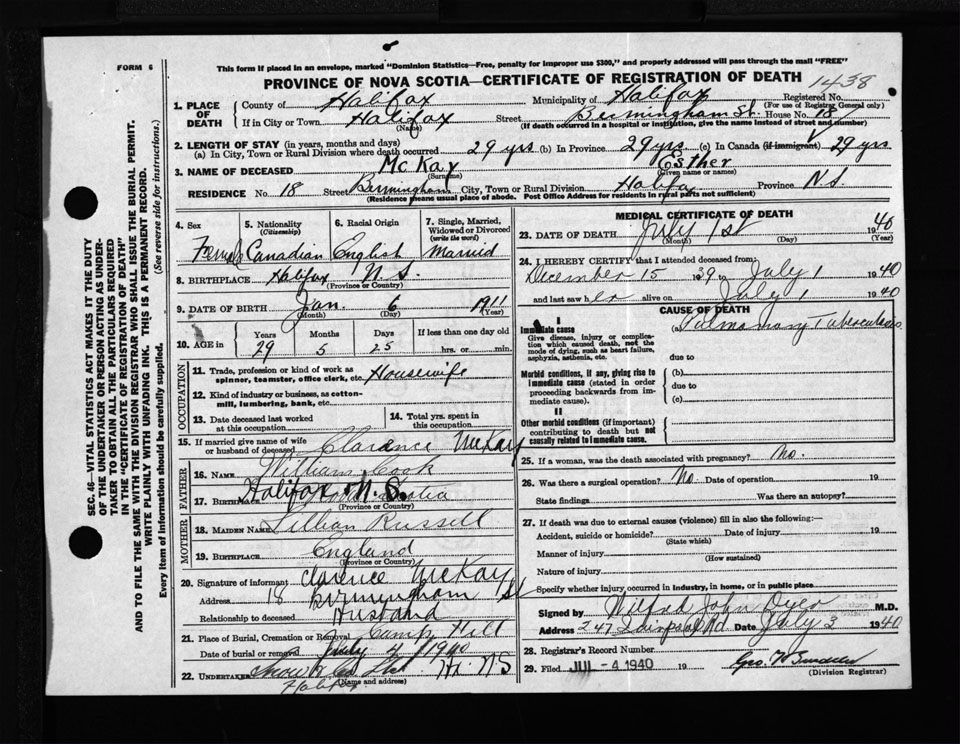 FORM 6
This form if placed in an envelope, marked "Dominion Statistics—Free, penalty for improper use $300," and properly addressed will pass through the mail "FREE"
PROVINCE OF NOVA SCOTIA—CERTIFICATE OF REGISTRATION OF DEATH
1438
1. PLACE OF DEATH
County of Halifax Municipality of Halifax Registered No.
(For use of Registrar General only)
If in City or Town Halifax Street Birmingham St. House No. 18
(Name) (If death occurred in a hospital or institution, give the name instead of street and number)
2. LENGTH OF STAY (in years, months and days)
(a) In City, Town or Rural Division where death occurred 29 yrs (b) In Province 29 yrs (c) In Canada (if immigrant) 29 yrs
3. NAME OF DECEASED McKay Esther
(Surname) (Given name or names)
RESIDENCE No. 18 Street Birmingham City, Town or Rural Division Halifax Province N.S.
(Residence means usual place of abode. Post Office Address for residents in rural parts not sufficient)
4. Sex
Female
5. Nationality (Citizenship)
Canadian
6. Racial Origin
English
7. Single, Married, Widowed or Divorced (write the word)
Married
8. BIRTHPLACE Halifax N.S.
(Province or Country)
9. DATE OF BIRTH Jan. 6 1911
(Month) (Day) (Year)
10. AGE in Years Months Days If less than one day old
29 5 25 hrs. or min.
OCCUPATION
11. Trade, profession or kind of work as spinner, teamster, office clerk, etc. Housewife
12. Kind of industry or business, as cotton-mill, lumbering, bank, etc.
13. Date deceased last worked at this occupation
14. Total yrs. spent in this occupation
15. If married give name of wife or husband of deceased Clarence McKay
FATHER
16. NAME William Cook
17. BIRTHPLACE Halifax N.S.
(Province or Country)
MOTHER
18. MAIDEN NAME Lillian Russell
19. BIRTHPLACE England
(Province or Country)
20. Signature of informant Clarence McKay
Address 18 Birmingham St
Relationship to deceased Husband
21. Place of Burial, Cremation or Removal Camp Hill
Date of burial or removal July 4 1940
22. UNDERTAKER Snow & Co Hx. N.S
(Name and address)
Halifax
MEDICAL CERTIFICATE OF DEATH
23. DATE OF DEATH July 1st 1940
(Month) (Day) (Year)
24. I HEREBY CERTIFY that I attended deceased from:
December 15 1939 to July 1 1940
and last saw her alive on July 1 1940
CAUSE OF DEATH
I
Immediate cause
Give disease, injury or complication which caused death, not the mode of dying, such as heart failure, asphyxia, asthenia, etc.
(a) Pulmonary Tuberculosis
due to
Morbid conditions, if any, giving rise to immediate cause (stated in order proceeding backwards from immediate cause).
(b)
due to
(c)
II
Other morbid conditions (if important) contributing to death but not causally related to immediate cause.
25. If a woman, was the death associated with pregnancy? No.
26. Was there a surgical operation? No. Date of operation 19
State findings Was there an autopsy?
27. If death was due to external causes (violence) fill in also the following:—
Accident, suicide or homicide? Date of injury 19
(State which)
Manner of injury
(How sustained)
Nature of injury
Specify whether injury occurred in industry, in home, or in public place
Signed by Wilfred John Dyer M.D.
Address 247 Date July 3 1940
28. Registrar's Record Number
29. Filed JUL - 4 1940 19
(Division Registrar)
SEC. 46—VITAL STATISTICS ACT MAKES IT THE DUTY
OF THE UNDERTAKER OR PERSON ACTING AS UNDER-
TAKER TO OBTAIN ALL THE PARTICULARS REQUIRED
IN THE "CERTIFICATE OF REGISTRATION OF DEATH"
AND TO FILE THE SAME WITH THE DIVISION REGISTRAR WHO SHALL ISSUE THE BURIAL PERMIT.
WRITE PLAINLY WITH UNFADING INK. THIS IS A PERMANENT RECORD.
Every item of information should be carefully supplied. (See reverse side for instructions.)